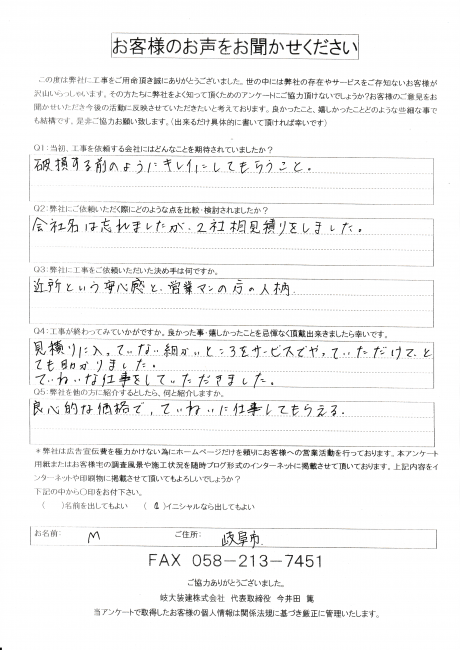 お客様のお声をお聞かせください
この度は弊社に工事をご用命頂き誠にありがとうございました。世の中には弊社の存在やサービスをご存知ないお客様が
沢山いらっしゃいます。その方たちに弊社をよく知って頂くためのアンケートにご協力頂けないでしょうか?お客様のご意見をお
聞かせいただき今後の活動に反映させていただきたいと考えております。良かったこと、嬉しかったことどのような些細な事で
も結構です。是非ご協力お願い致します。(出来るだけ具体的に書いて頂ければ幸いです)
Q1:当初、工事を依頼する会社にはどんなことを期待されていましたか?
破損する前のようにキレイにしてもらうこと。
Q2:弊社にご依頼いただく際にどのような点を比較・検討されましたか?
会社名は忘れましたが、2社相見積りをしました。
Q3:弊社に工事をご依頼いただいた決め手は何ですか。
近所という安心感と、営業マンの方の人柄
Q4:工事が終わってみていかがですか。良かった事・嬉しかったことを忌憚なく頂戴出来きましたら幸いです。
見積りに入っていない細かいところをサービスでやっていただけて、と
ても助かりました。
ていねいな仕事をしていただきました。
Q5:弊社を他の方に紹介するとしたら、何と紹介しますか。
良心的な価格で、ていねいに仕事してもらえる。
*弊社は広告宣伝費を極力かけない為にホームページだけを頼りにお客様への営業活動を行っております。本アンケート
用紙またはお客様宅の調査風景や施工状況を随時ブログ形式のインターネットに掲載させて頂いております。上記内容をイ
ンターネットや印刷物に掲載させて頂いてもよろしいでしょうか?
下記の中から○印をお付下さい。
( )名前を出してもよい ( )イニシャルなら出してもよい
お名前: M ご住所: 岐阜市
FAX 058-213-7451
ご協力ありがとうございました。
岐大装建株式会社 代表取締役 今井田 篤
当アンケートで取得したお客様の個人情報は関係法規に基づき厳正に管理いたします。